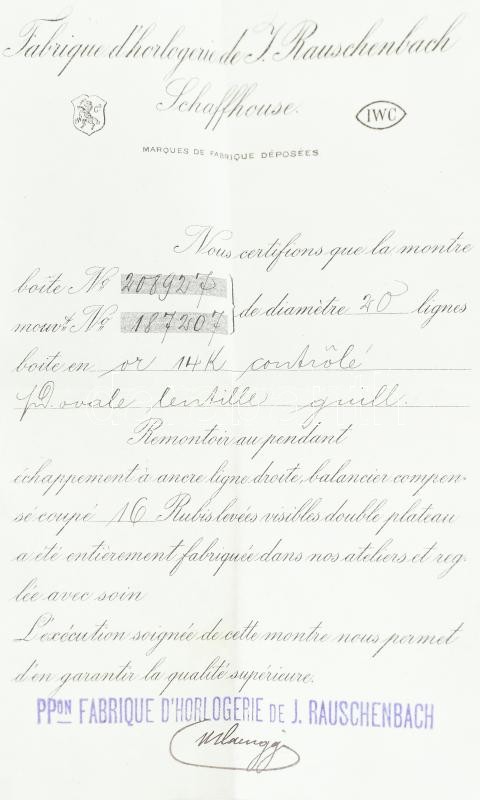 Fabrique d'horlogerie de J. Rauschenbach
Schaffhouse.
IWC
MARQUES DE FABRIQUE DÉPOSÉES
Nous certifions que la montre
boîte No 208927
mouvt. No 187207
de diamètre 20 lignes
boîte en or 14K contrôlé
ovale lentille guill.
Remontoir au pendant
échappement à ancre ligne droite, balancier compen-
sé coupé 16 Rubis levées visibles double plateau
a été entièrement fabriquée dans nos ateliers et reg-
lée avec soin
L'éxécution soignée de cette montre nous permet
d'en garantir la qualité supérieure.
PPON FABRIQUE D'HORLOGERIE DE J. RAUSCHENBACH